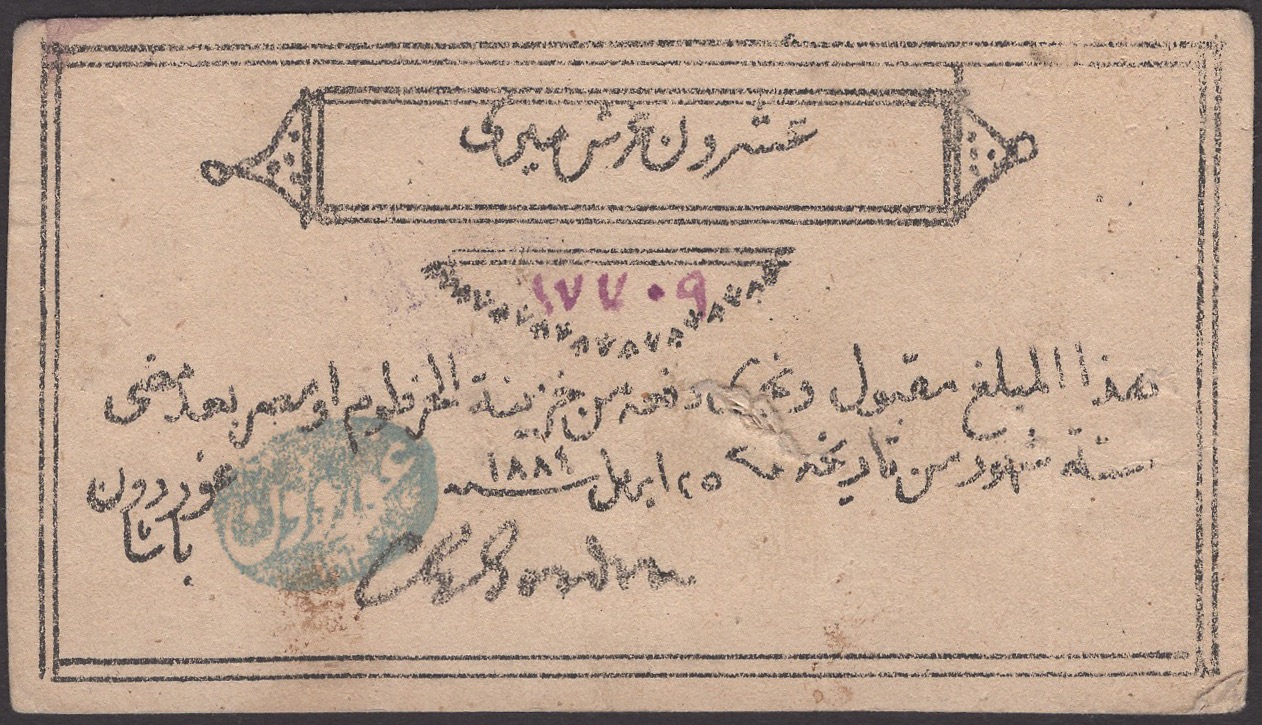 عشرون غرش ميرى
١٧٧٠٩
هذا المبلغ مقبول ونجرى دفعه من خزينة الخرطوم او مصر بعد مضى
ستة شهور من تاريخه ٢٥ ابريل سنة ١٨٨٤
غوردون
باشا
C G Gordon